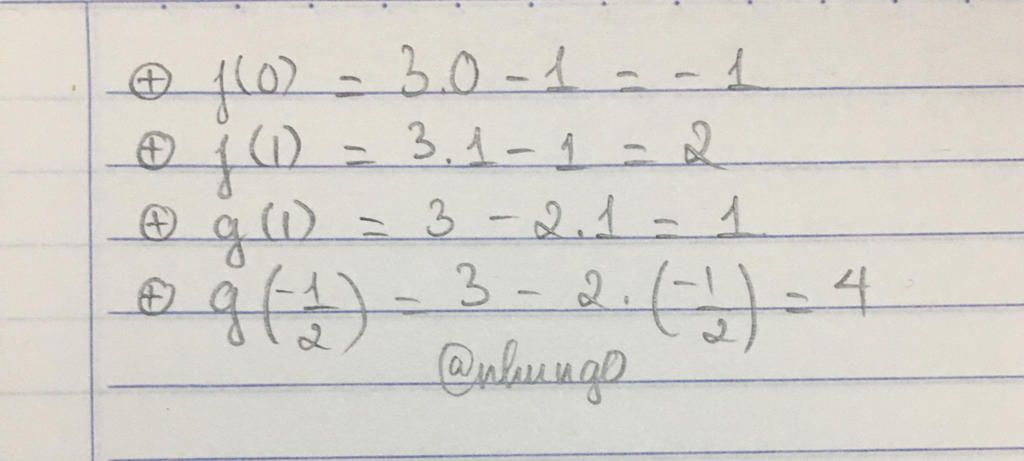 ⊕ f(0) = 3.0 - 1 = - 1
⊕ f(1) = 3.1 - 1 = 2
⊕ g(1) = 3 - 2.1 = 1
⊕ g(-1/2) = 3 - 2.(-1/2) = 4
@nhung0